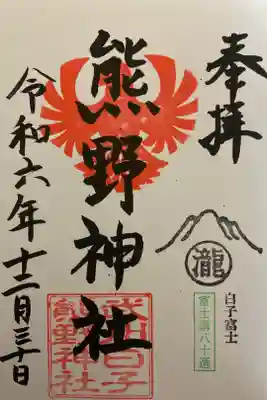 奉拝
瀧
白子富士
富士講八十遍
熊野神社
武州白子
熊野神社
令和六年十二月三十日